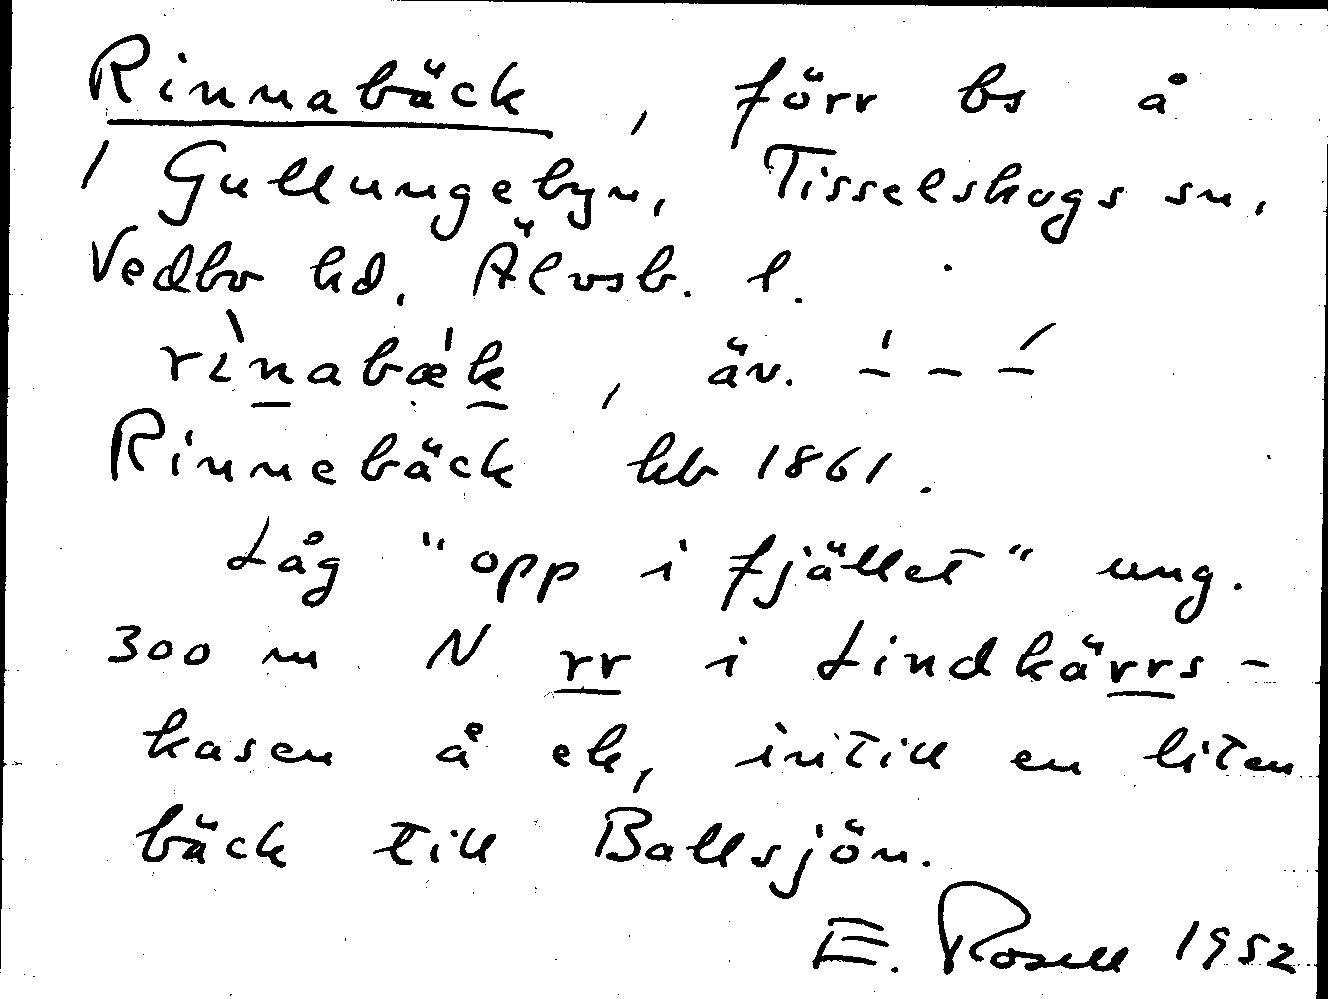 Rinnabäck, förr bs å
1 Gullungebyn, Tisselskogs sn,
Vedbo hd, Älvsb. l.
rìnabǽk, äv. –́ – –́
Rinnebäck hb 1861.
Låg "opp i fjället" ung.
300 m N rr i Lindkärrs-
kasen å ek, intill en liten
bäck till Ballsjön.
E. Rosell 1952